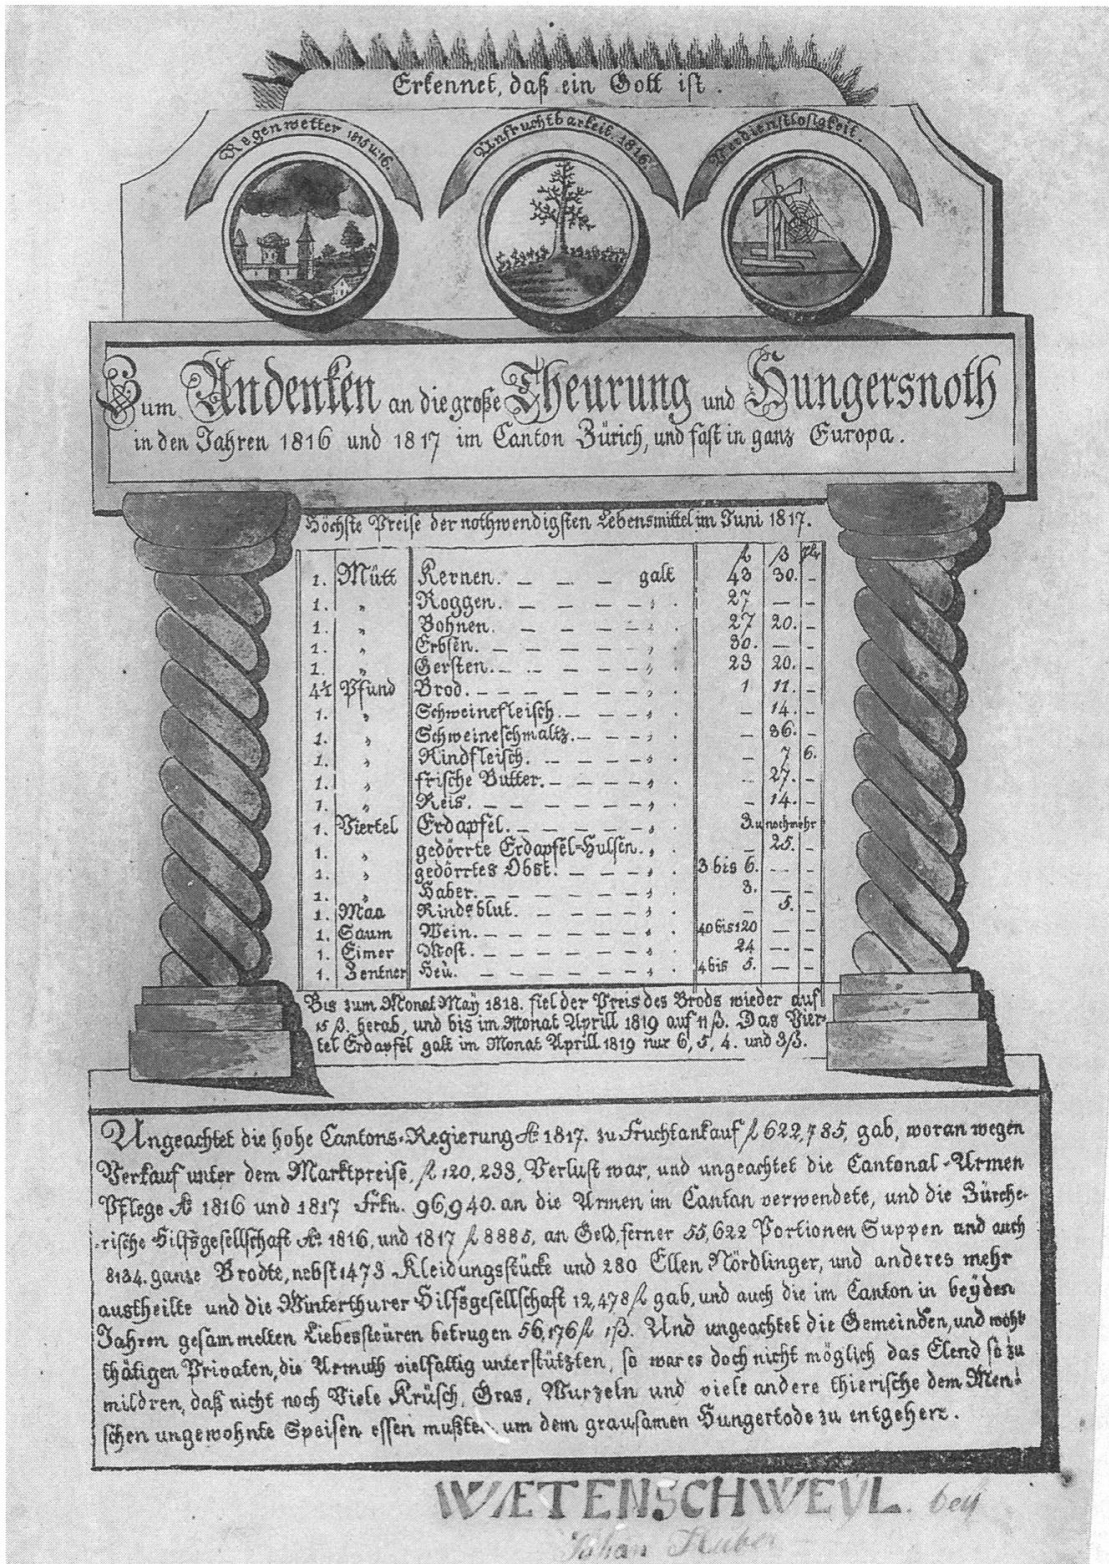 Erkennet, daß ein Gott ist.
Regenwetter 1815 u. 16.
Unfruchtbarkeit, 1816.
Verdienstlosigkeit.
Zum Andenken an die große Theurung und Hungersnoth
in den Jahren 1816 und 1817 im Canton Zürich, und fast in ganz Europa.
Höchste Preise der nothwendigsten Lebensmittel im Juni 1817.
fl ß hlr
1. Mütt Kernen. — — — galt 43 30. —
1. „ Roggen. — — — — „ . 27 — —
1. „ Bohnen. — — — — „ . 27 20. —
1. „ Erbsen. — — — — „ . 30. — —
1. „ Gersten. — — — — „ . 23 20. —
4½ Pfund Brod. — — — — „ . 1 11. —
1. „ Schweinefleisch. — — — „ . — 14. —
1. „ Schweineschmaltz. — — — „ . — 36. —
1. „ Rindfleisch. — — — — „ . — 7 6.
1. „ frische Butter. — — — — „ . — 27. —
1. „ Reis. — — — — — „ . — 14. —
1. Viertel Erdapfel. — — — — „ . 3. u noch mehr
1. „ gedörrte Erdapfel=Hulsen. „ . — 25. —
1. „ gedörrtes Obst. — — — „ . 3 bis 6. — —
1. „ Haber. — — — — „ . 3. — —
1. Maa Rindsblut. — — — — „ . — 5. —
1. Saum Wein. — — — — „ . 40 bis 120 — —
1. Eimer Most. — — — — „ . 24 — —
1. Zentner Heü. — — — — „ . 4 bis 5. — —
Bis zum Monat Maÿ 1818. fiel der Preis des Brods wieder auf
15 ß. herab, und bis im Monat Aprill 1819 auf 11 ß. Das Vier-
tel Erdapfel galt im Monat Aprill 1819 nur 6, 5, 4. und 3 ß.
Ungeachtet die hohe Cantons=Regierung Ao 1817. zu Fruchtankauf fl 622,785, gab, woran wegen
Verkauf unter dem Marktpreise, fl 120,233, Verlust war, und ungeachtet die Cantonal=Armen
Pflege Ao 1816 und 1817 Frkn. 96,940. an die Armen im Cantan verwendete, und die Zürche-
=rische Hilfsgesellschaft Ao. 1816, und 1817 fl 8885, an Geld, ferner 55,622 Portionen Suppen und auch
8134. ganze Brodte, nebst 1473 Kleidungsstücke und 280 Ellen Nördlinger, und anderes mehr
austheilte und die Winterthurer Hilfsgesellschaft 12,478 fl gab, und auch die im Canton in beÿden
Jahren gesammelten Liebessteüren betrugen 56,176 fl 1 ß. Und ungeachtet die Gemeinden, und wohl
thätigen Privaten, die Armuth vielfaltig unterstützten, so war es doch nicht möglich das Elend so zu
mildren, daß nicht noch Viele Krüsch, Gras, Wurzeln und viele andere thierische dem Men=
schen ungewohnte Speisen essen mußten um dem grausamen Hungertode zu entgehen.
WÆTENSCHWEYL. beÿ
Johan Huber